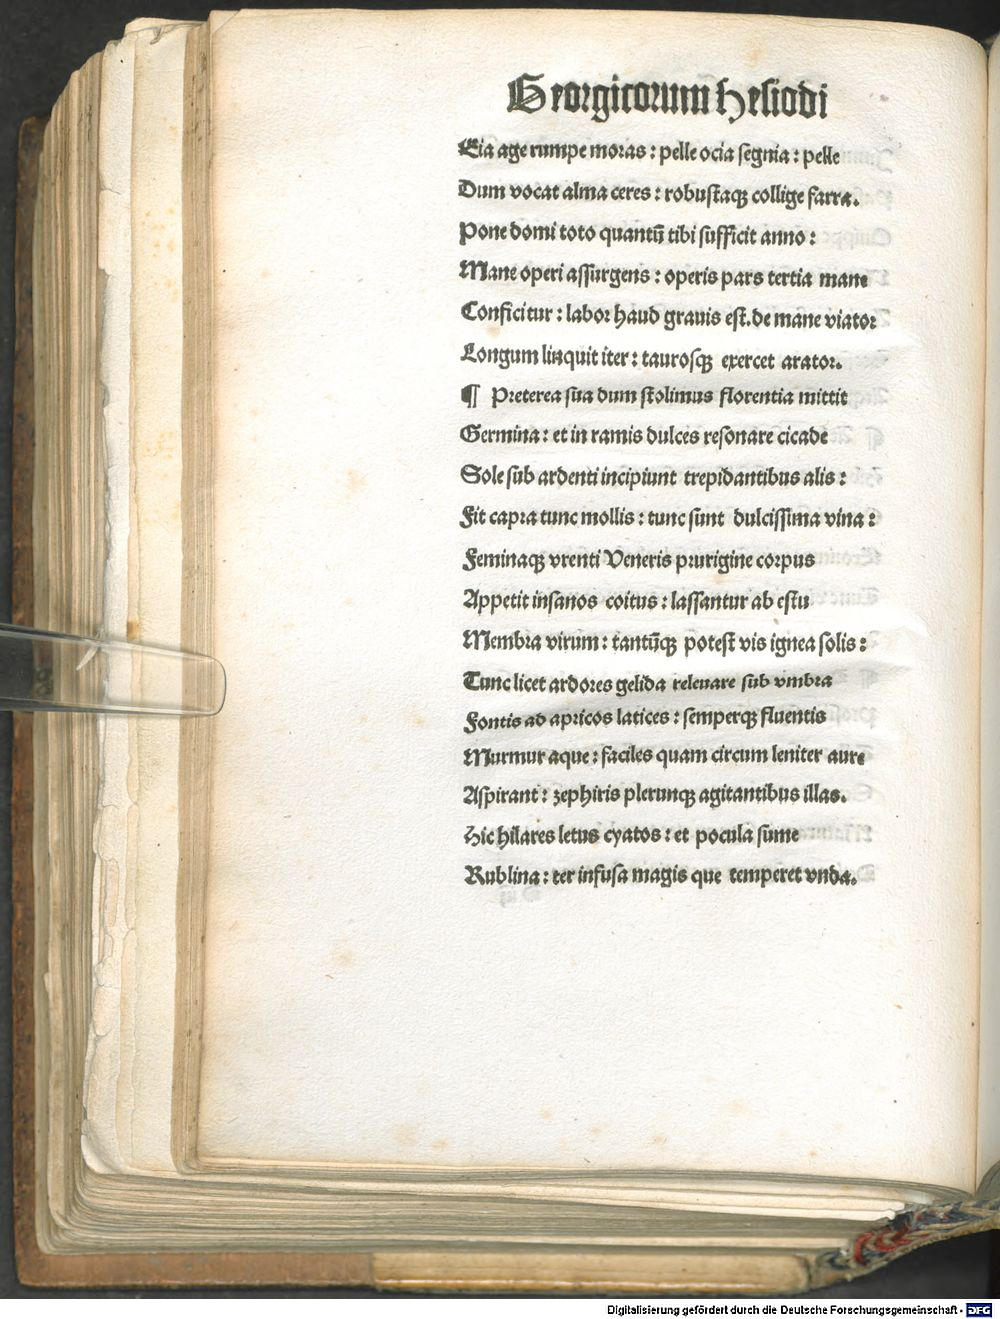 Georgicorum Hesiodi
Eia age rumpe moras : pelle ocia segnia : pelle
Dum vocat alma ceres : robustaqꝫ collige farra.
Pone domi toto quantū tibi sufficit anno :
Mane operi assurgens : operis pars tertia mane
Conficitur : labor haud grauis est. de mane viator
Longum linquit iter : taurosqꝫ exercet arator.
¶ Preterea sua dum stolimus florentia mittit
Germina : et in ramis dulces resonare cicade
Sole sub ardenti incipiunt trepidantibus alis :
Fit capra tunc mollis : tunc sunt dulcissima vina :
Feminaqꝫ vrenti Veneris prurigine corpus
Appetit insanos coitus : lassantur ab estu
Membra virum : tantūqꝫ potest vis ignea solis :
Tunc licet ardores gelida releuare sub vmbra
Fontis ad apricos latices : semperqꝫ fluentis
Murmur aque : faciles quam circum leniter aure
Aspirant : zephiris plerunqꝫ agitantibus illas.
Hic hilares letus cyatos : et pocula sume
Rublina : ter infusa magis que temperet vnda.
Digitalisierung gefördert durch die Deutsche Forschungsgemeinschaft - DFG